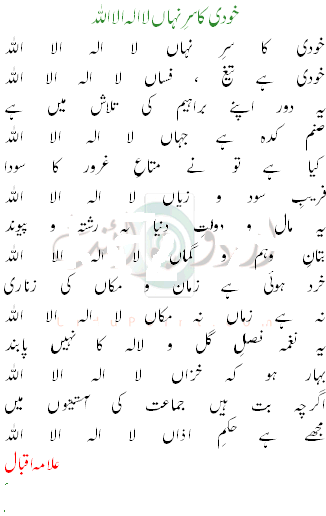 خودی کا سر نہاں لا الہ الا اللہ
خودی کا سرِ نہاں لا الہ الا اللہ
خودی ہے تیغ ، فساں لا الہ الا اللہ
یہ دور اپنے براہیم کی تلاش میں ہے
صنم کدہ ہے جہاں لا الہ الا اللہ
کیا ہے تو نے متاعِ غرور کا سودا
فریبِ سود و زیاں لا الہ الا اللہ
یہ مال و دولت دنیا یہ رشتہ و پیوند
بتانِ وہم و گماں لا الہ الا اللہ
خرد ہوئی ہے زمان و مکاں کی زناری
نہ ہے زماں نہ مکاں لا الہ الا اللہ
یہ نغمہ فصلِ گل و لالہ کا نہیں پابند
بہار ہو کہ خزاں لا الہ الا اللہ
اگرچہ بت ہیں جماعت کی آستینوں میں
مجھے ہے حکمِ اذاں لا الہ الا اللہ
علامہ اقبال